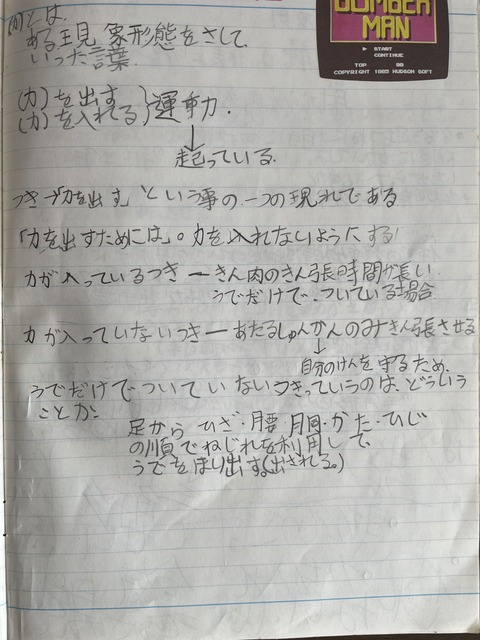 (力)とは
ある現象形態をさして
いった言葉
(力)を出す
(力)を入れる}運動力.
↓
起っている.
つき→「力を出す」という事の一つの現れである
「力を出すためには」。力を入れないようにする
力が入っているつき ー きん肉のきん張時間が長い
うでだけで.ついている場合
力が入っていないつき ー あたるしゅんかんのみきん張させる
↓
自分のけんを守るため.
うでだけでついていないつきっていうのは、どういう
ことか.
足から ひざ・腰 胴・かた・ひじ
の順でねじれを利用して、
うでをほり出す。(出される。)
BOMBER
MAN
START
CONTINUE
TOP 00
COPYRIGHT 1985 HUDSON SOFT